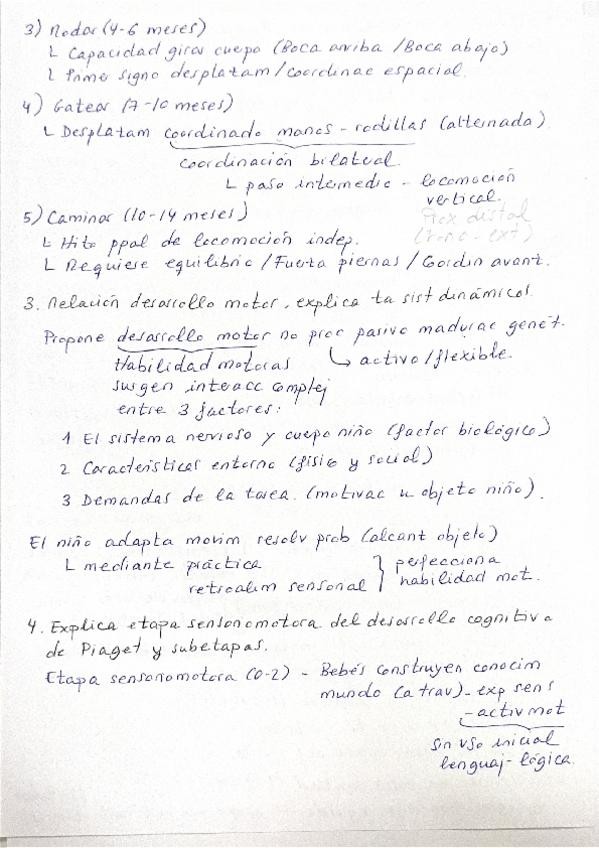 3) Rodar (4-6 meses)
L Capacidad girar cuepo (Boca arriba / Boca abajo)
L Prime signo desplatam / coordinac espacial.
4) Gatear (7-10 meses)
L Desplatam coordinado manos - rodillas (alternada)
coordinación bilateral.
L paso intermedio - locomoción
vertical.
5) Caminar (10-14 meses)
Prox distal
L Hito ppal de locomoción indep.
L Requiere equilibrio / Fuerza piernas / Coordin avanz.
3. Relación desarrollo motor, explica ta sist dinámicos.
Propone desarrollo motor no proc pasivo madurac genét.
Habilidad motoras
activo / flexible.
surgen interacc complej
entre 3 factores:
1 El sistema nervioso y cuerpo niño (factor biológico)
2 Características entorno (físio y social)
3 Demandas de la tarea. (motivac u objeto niño).
El niño adapta movim resolv prob (alcanz objeto)
L mediante práctica
retroalim sensorial
perfecciona
habilidad mot.
4. Explica etapa sensoriomotora del desarrollo cognitivo
de Piaget y subetapas.
Etapa sensoriomotora (0-2) - Bebés construyen conocim
mundo (a trav) - exp sens
- activ mot
Sin uso inicial
lenguaj - lógica.